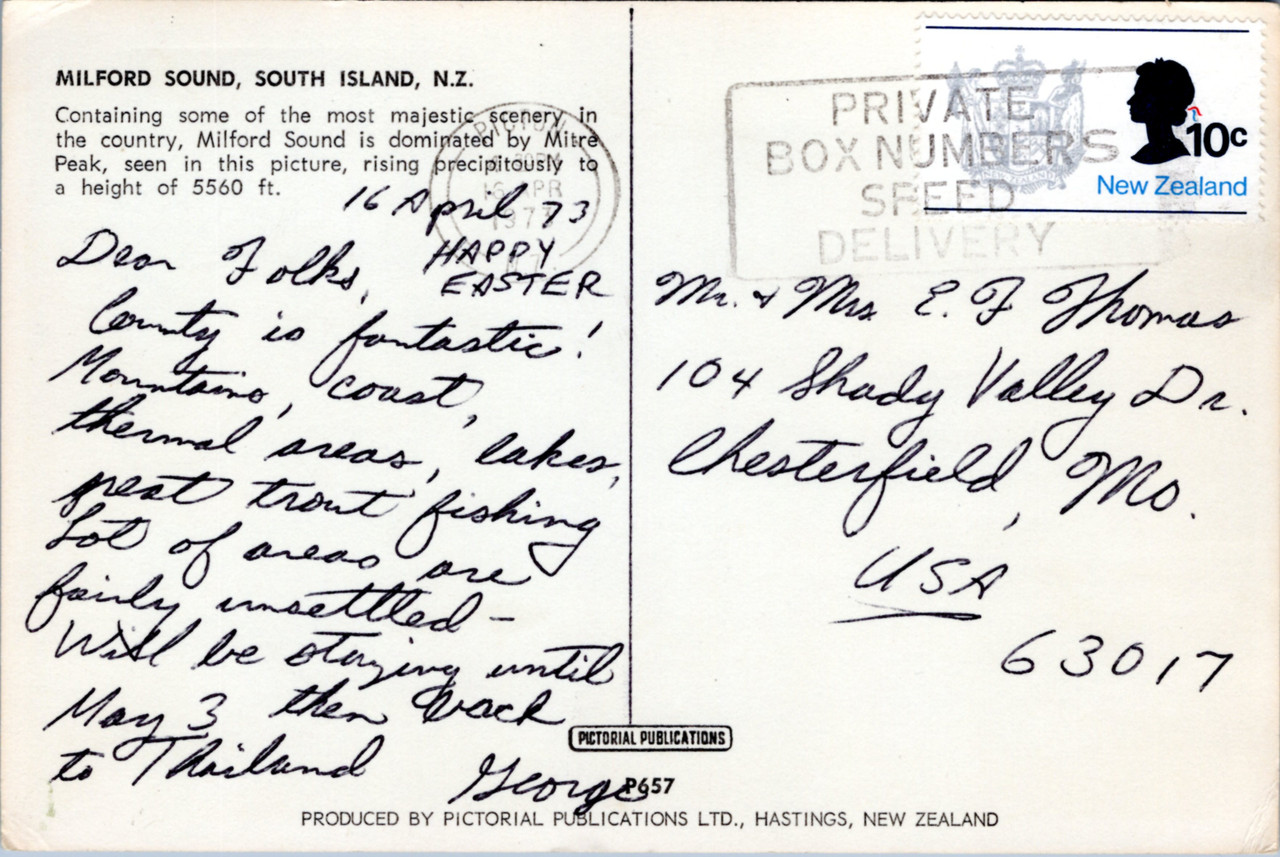 MILFORD SOUND, SOUTH ISLAND, N.Z.
Containing some of the most majestic scenery in
the country, Milford Sound is dominated by Mitre
Peak, seen in this picture, rising precipitously to
a height of 5560 ft.
16 April 73
Dear Folks,
HAPPY
EASTER
County is fantastic!
Mountains, coast,
thermal areas, lakes,
great trout fishing
Lot of areas are
fairly unsettled -
Will be staying until
May 3 then back
to Thailand
George
PICTON
16 APR
1973
PRIVATE
BOX NUMBERS
SPEED
DELIVERY
10c
New Zealand
Mr. & Mrs. E. F Thomas
104 Shady Valley Dr.
Chesterfield, Mo.
USA
63017
PICTORIAL PUBLICATIONS
P657
PRODUCED BY PICTORIAL PUBLICATIONS LTD., HASTINGS, NEW ZEALAND